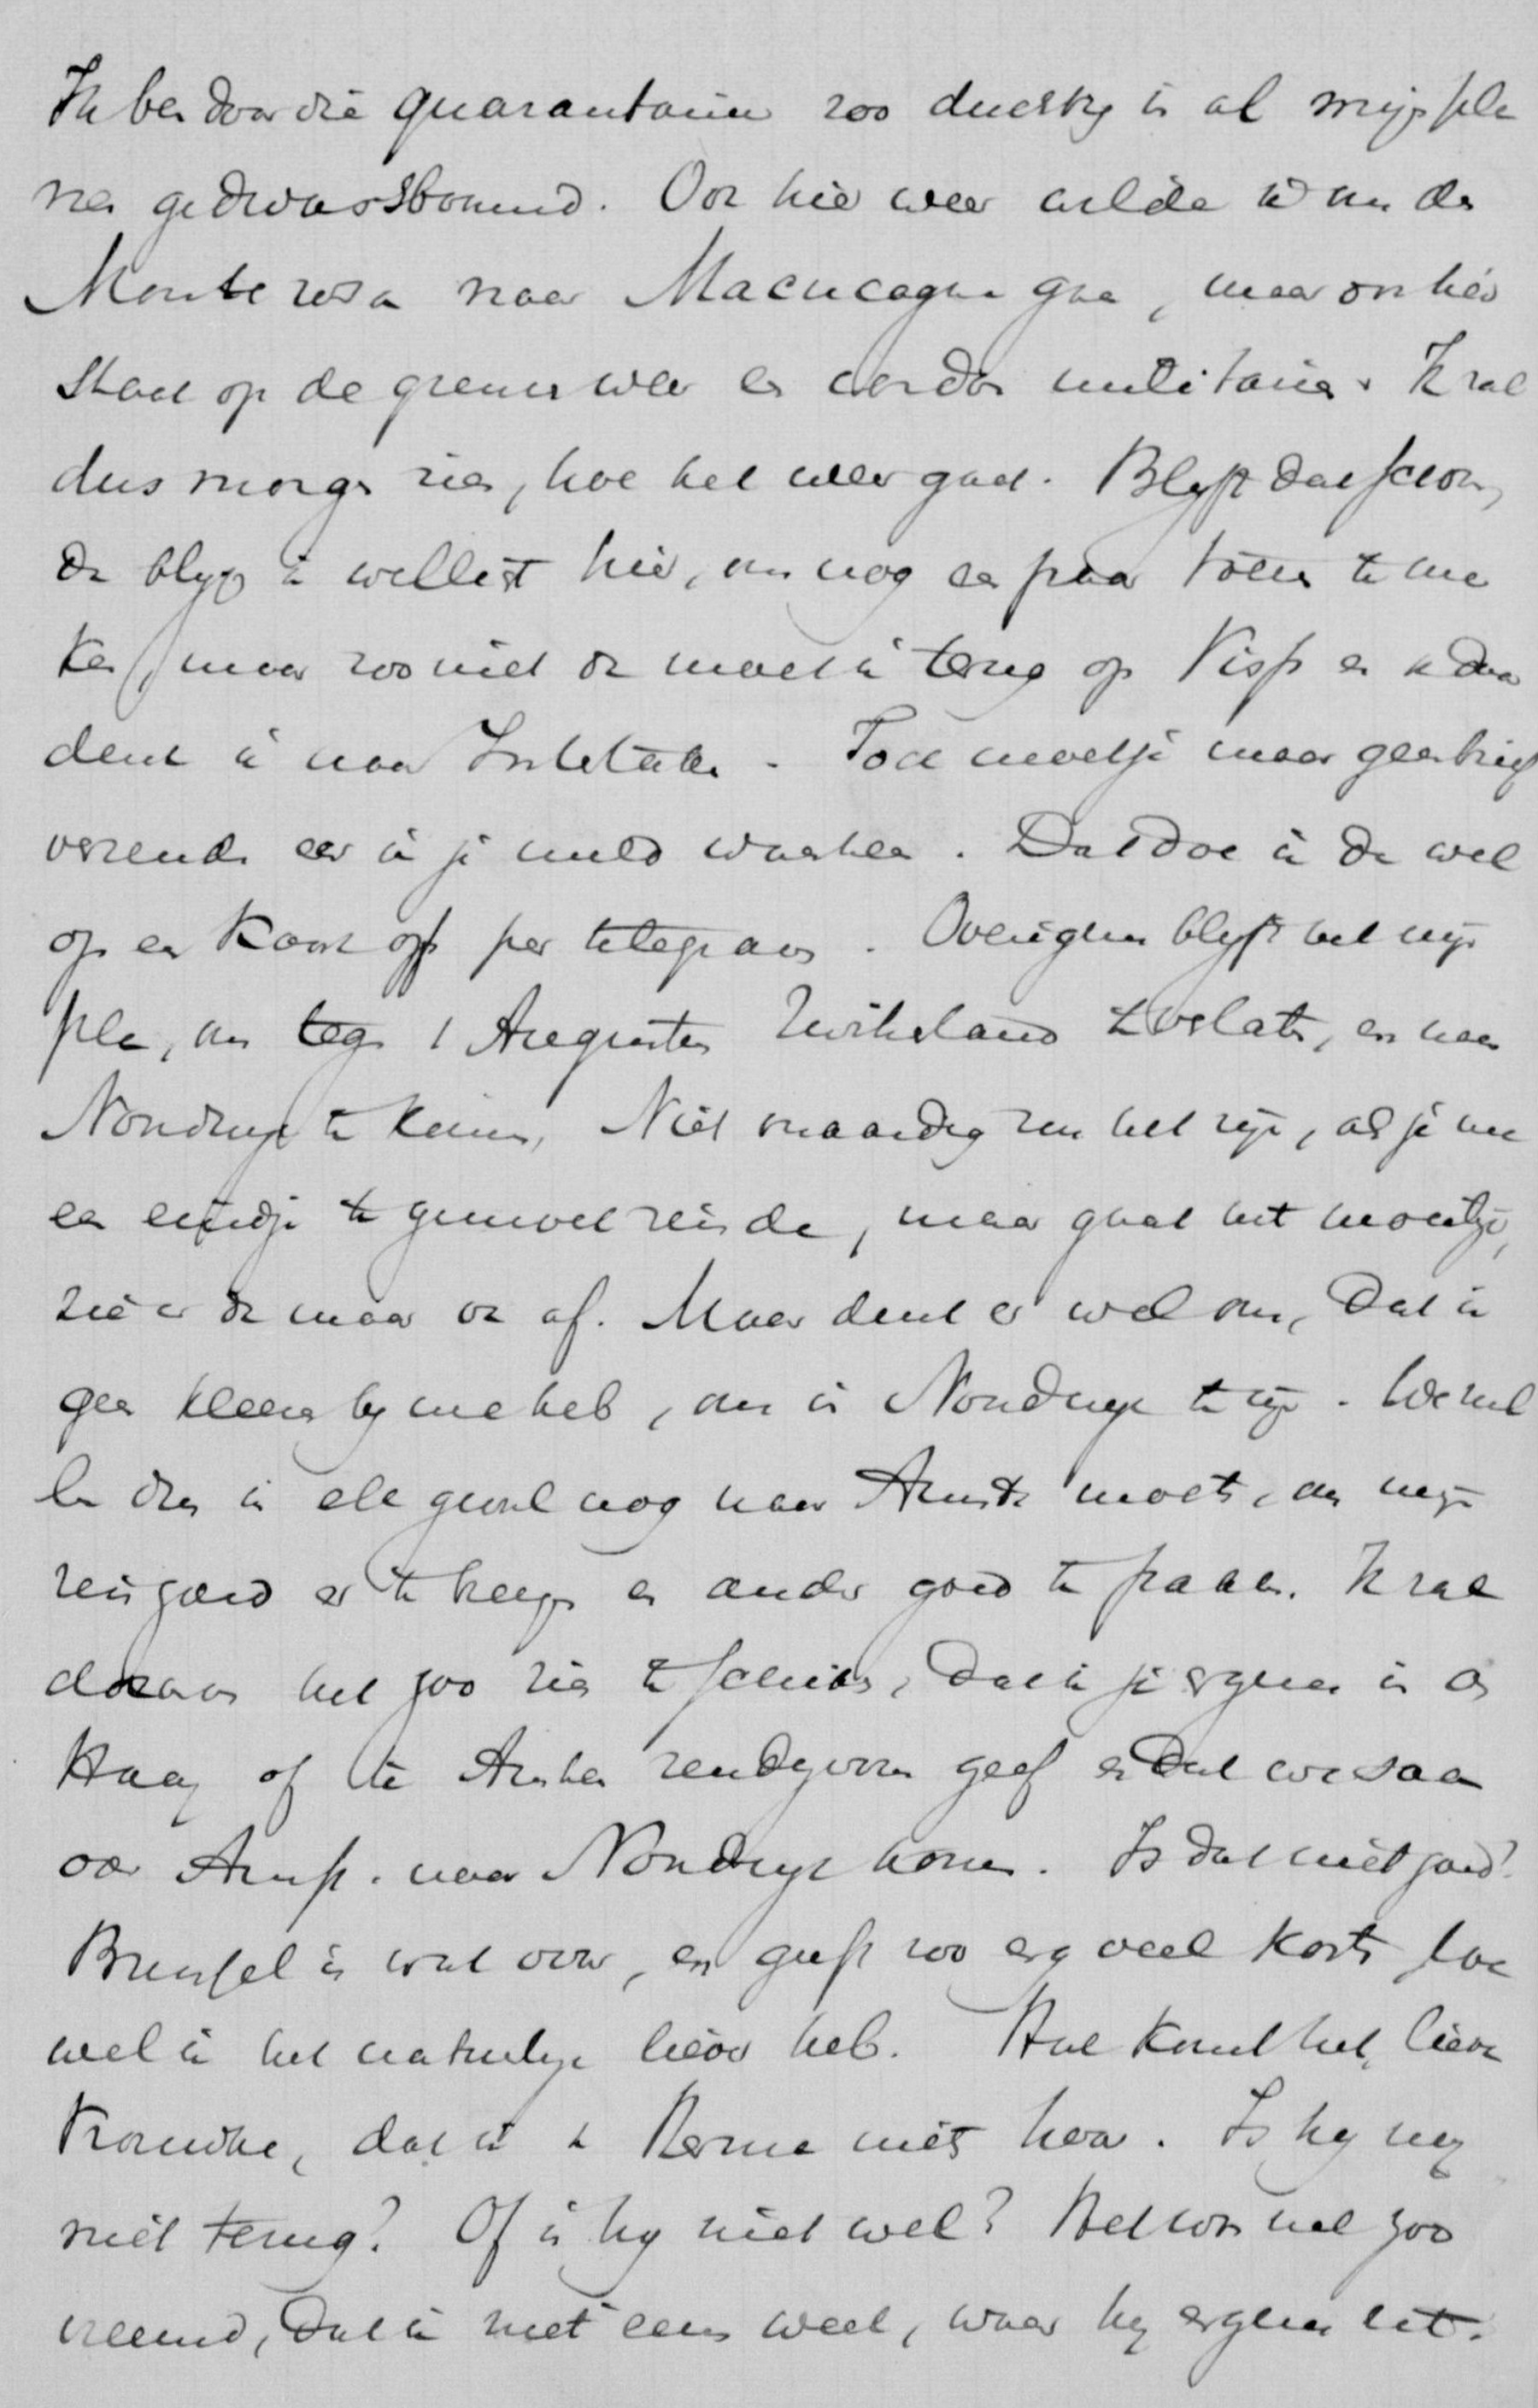 Ik ben door die quarantaine zoo duchtig in al mijn plan
nen gedwarsboomd. Ook hier weer wilde ik om den
Monte rosa naar Macucagna gaan, maar ook hier
staat op de grenzen weer een cordon militaire. Ik zal
dus morgen zien, hoe het weer gaat. Blyft dat schoon,
dan blyf ik wellicht hier, om nog een paar toeren te ma
ken, maar zoo niet dan moet ik terug op Visp en van daar
denk ik naar Interlaken. Toch moet je maar geen brief
verzenden eer ik je meld waarheen. Dat doe ik dan wel
op een kaart of per telegram. Overigens blyft het mijn
plan, om tegen 1 Augustus Zwitserland te verlaten, en naar
Noordwyk te komen. Niet onaardig zou het zijn, als je me
een eindje te gemoet reisde, maar gaat het moeitijk,
zie er dan maar van af. Maar denk er wel om, dat ik
geen kleeren by me heb, om in Noordwyk te zijn. We zul
len dus in elk geval nog naar Amst. moeten, om mijn
reisgoed er te bergen en ander goed te pakken. Ik zal
daarom het zoo zien te schikken, dat ik je ergens in den
Haag of te Arnhem rendezvous geef en dat we saam
over Amst. naar Noordwyk komen. Is dat niet goed?
Brussel is wat ver, en geeft zoo erg veel kosten hoe
wel ik het natuurlyk liever heb. Hoe komt het, lieve
Kroundke, dat ik van Herman niets hoor. Is hy nog
niet terug? Of is hy niet wel? Het is me zoo
vreemd, dat ik niet eens weet, waar hy ergens zit.